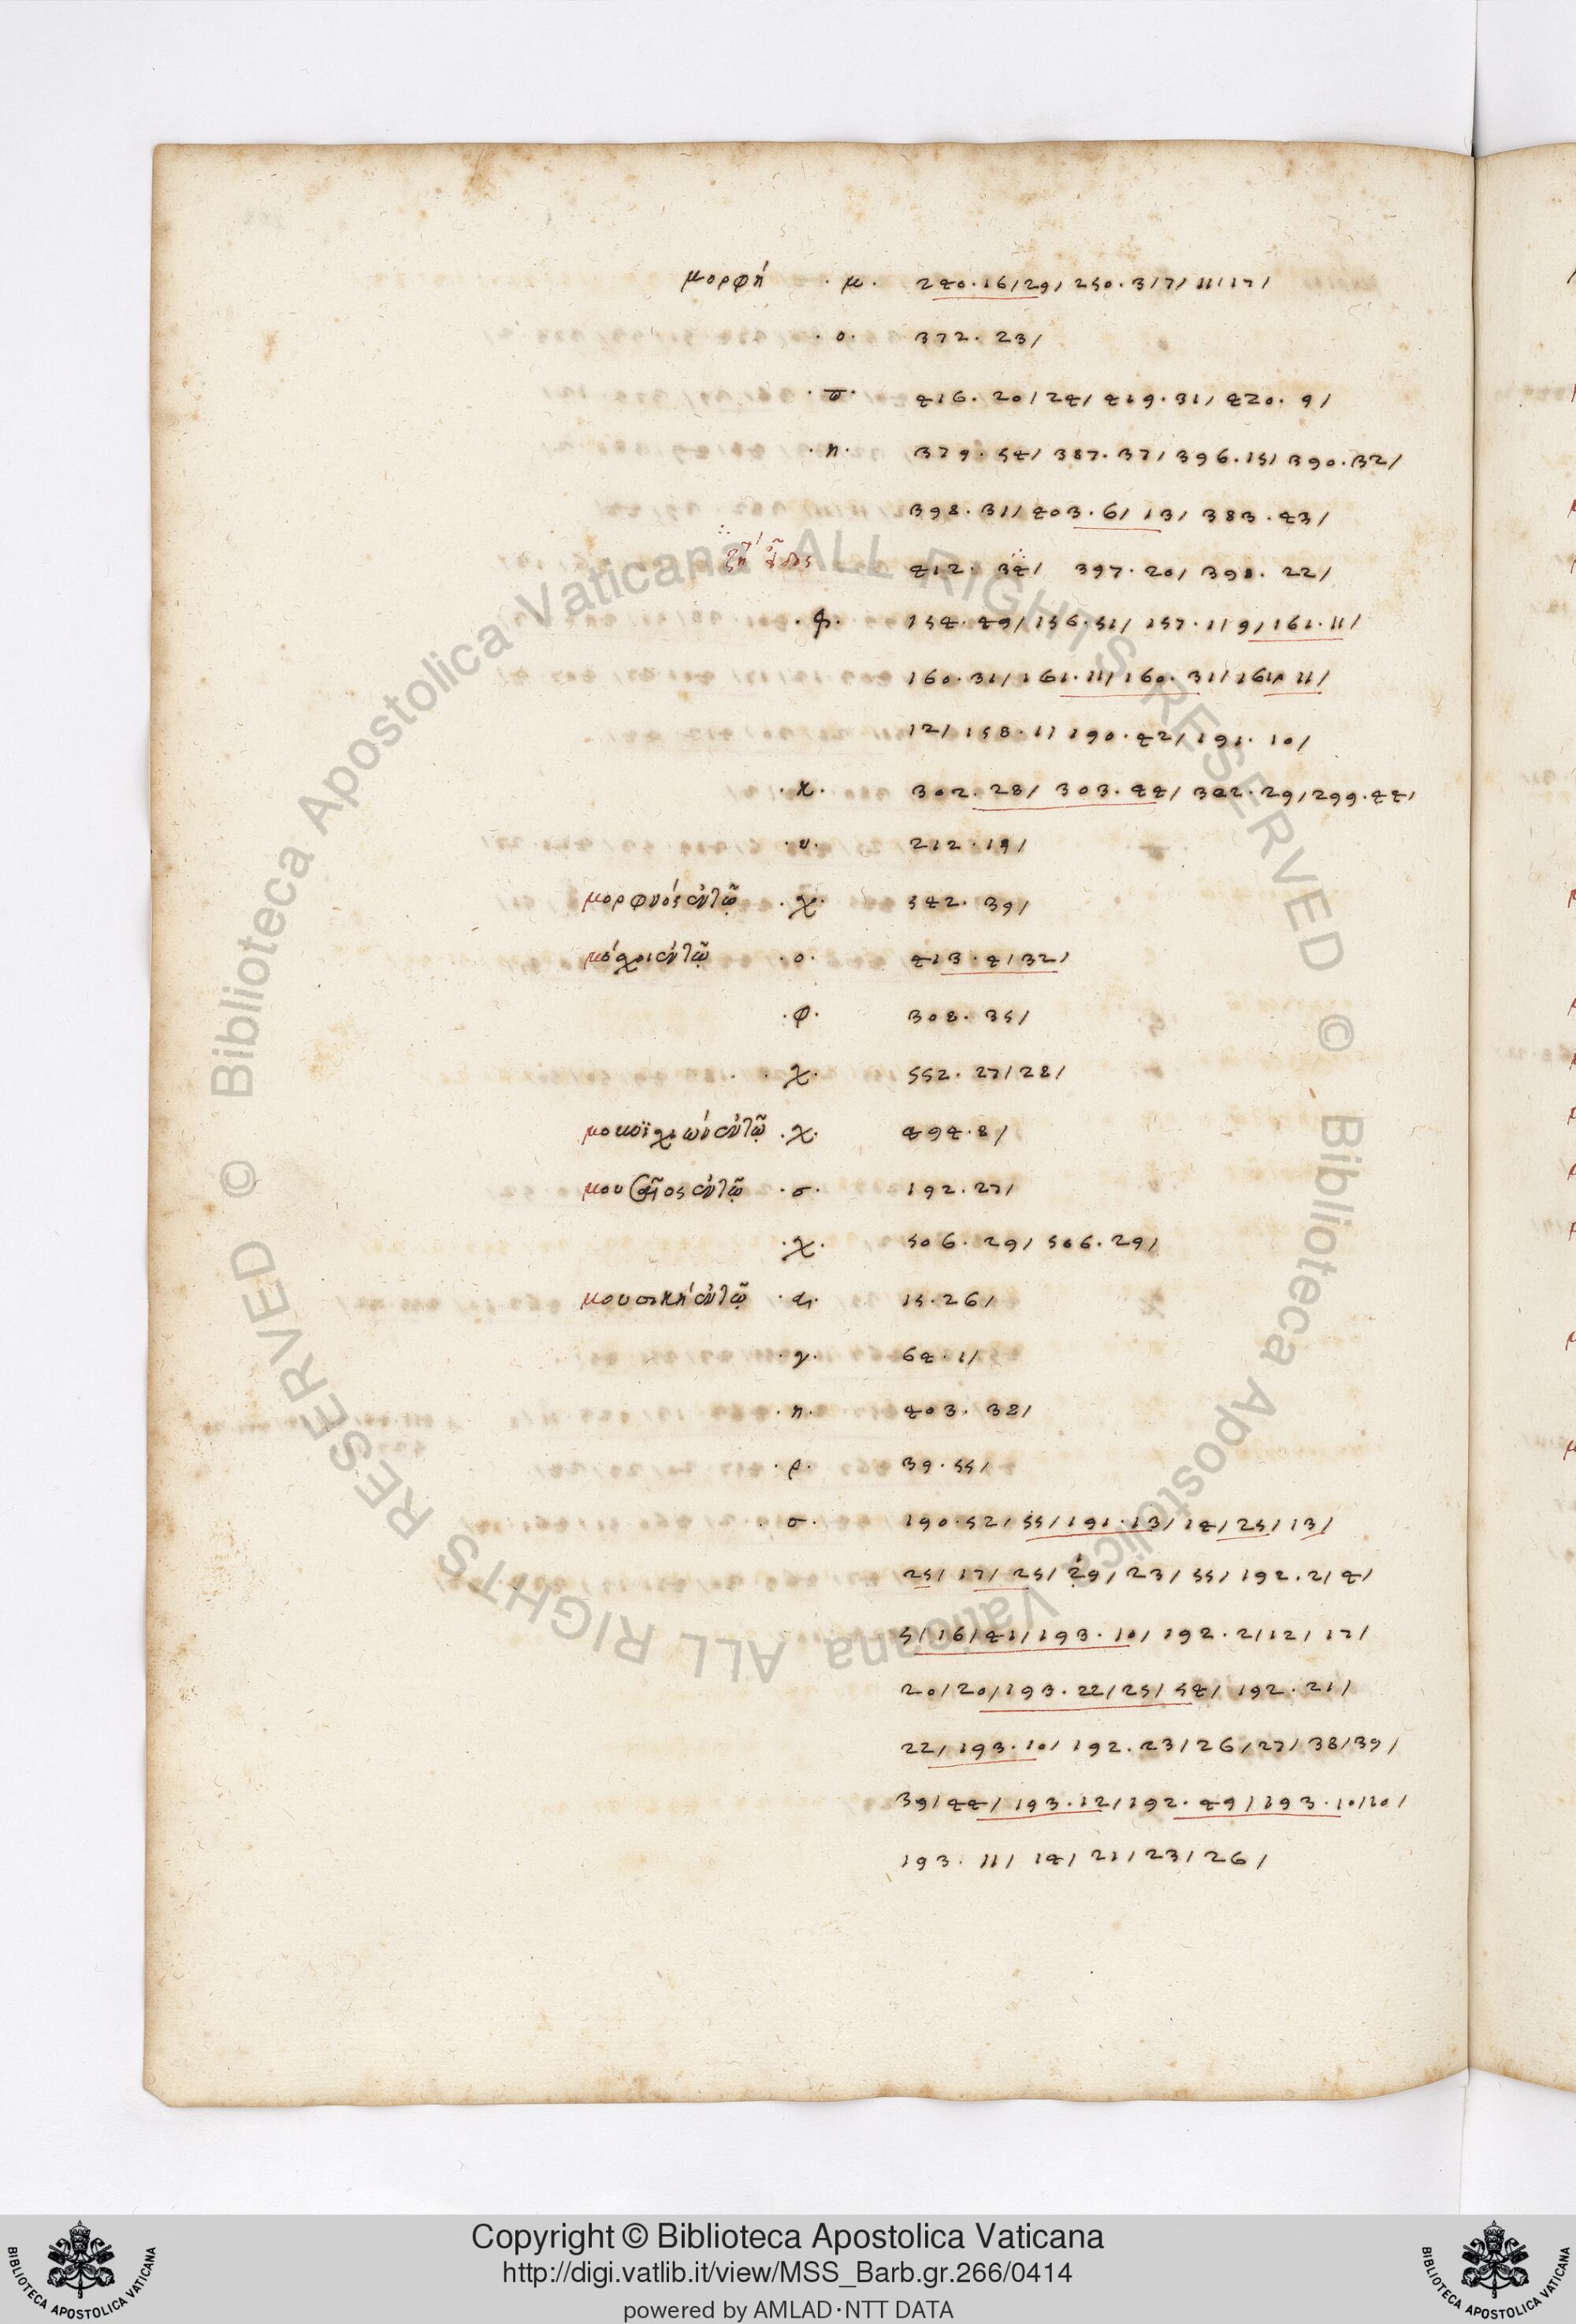 μορφή · μ · 240 · 16 / 29 / 250 · 3 / 7 / 11 / 17 /
· ο · 372 · 23 /
416 · 20 / 24 / 419 · 31 / 420 · 9 /
· η · 379 · 54 / 387 · 37 / 396 · 15 / 390 · 32 /
398 · 31 / 403 · 6 / 13 / 383 · 43 /
412 · 34 / 397 · 20 / 398 · 22 /
154 · 49 / 156 · 51 / 157 · 1 / 9 / 161 · 11 /
160 · 31 / 161 · 11 / 160 · 31 / 161 · 11 /
12 / 158 · 1 / 190 · 42 / 191 · 10 /
· κ · 302 · 28 / 303 · 44 / 302 · 29 / 299 · 44 /
· υ · 212 · 19 /
μορφνός ἐν τῷ · χ · 542 · 39 /
ἐν τῷ · ο · 413 · 4 / 32 /
· φ · 308 · 35 /
· χ · 552 · 27 / 28 /
ἐν τῷ · χ · 494 · 8 /
ἐν τῷ · σ · 192 · 27 /
· χ · 506 · 29 / 506 · 29 /
μουσική ἐν τῷ · α · 15 · 26 /
· γ · 64 · 1 /
· η · 403 · 38 /
· ρ · 39 · 55 /
· σ · 190 · 52 / 55 / 191 · 13 / 14 / 25 / 13 /
25 / 17 / 25 / 29 / 23 / 55 / 192 · 2 / 4 /
5 / 16 / 41 / 193 · 10 / 192 · 2 / 12 / 17 /
20 / 20 / 193 · 22 / 25 / 54 / 192 · 21 /
22 / 193 · 10 / 192 · 23 / 26 / 27 / 38 / 39 /
39 / 44 / 193 · 12 / 192 · 49 / 193 · 10 / 10 /
193 · 11 / 14 / 21 / 23 / 26 /
© Biblioteca Apostolica Vaticana ALL RIGHTS RESERVED © Biblioteca Apostolica Vaticana ALL RIGHTS RESERVED
Copyright © Biblioteca Apostolica Vaticana
http://digi.vatlib.it/view/MSS_Barb.gr.266/0414
powered by AMLAD·NTT DATA
BIBLIOTECA APOSTOLICA VATICANA
BIBLIOTECA APOSTOLICA VATICANA